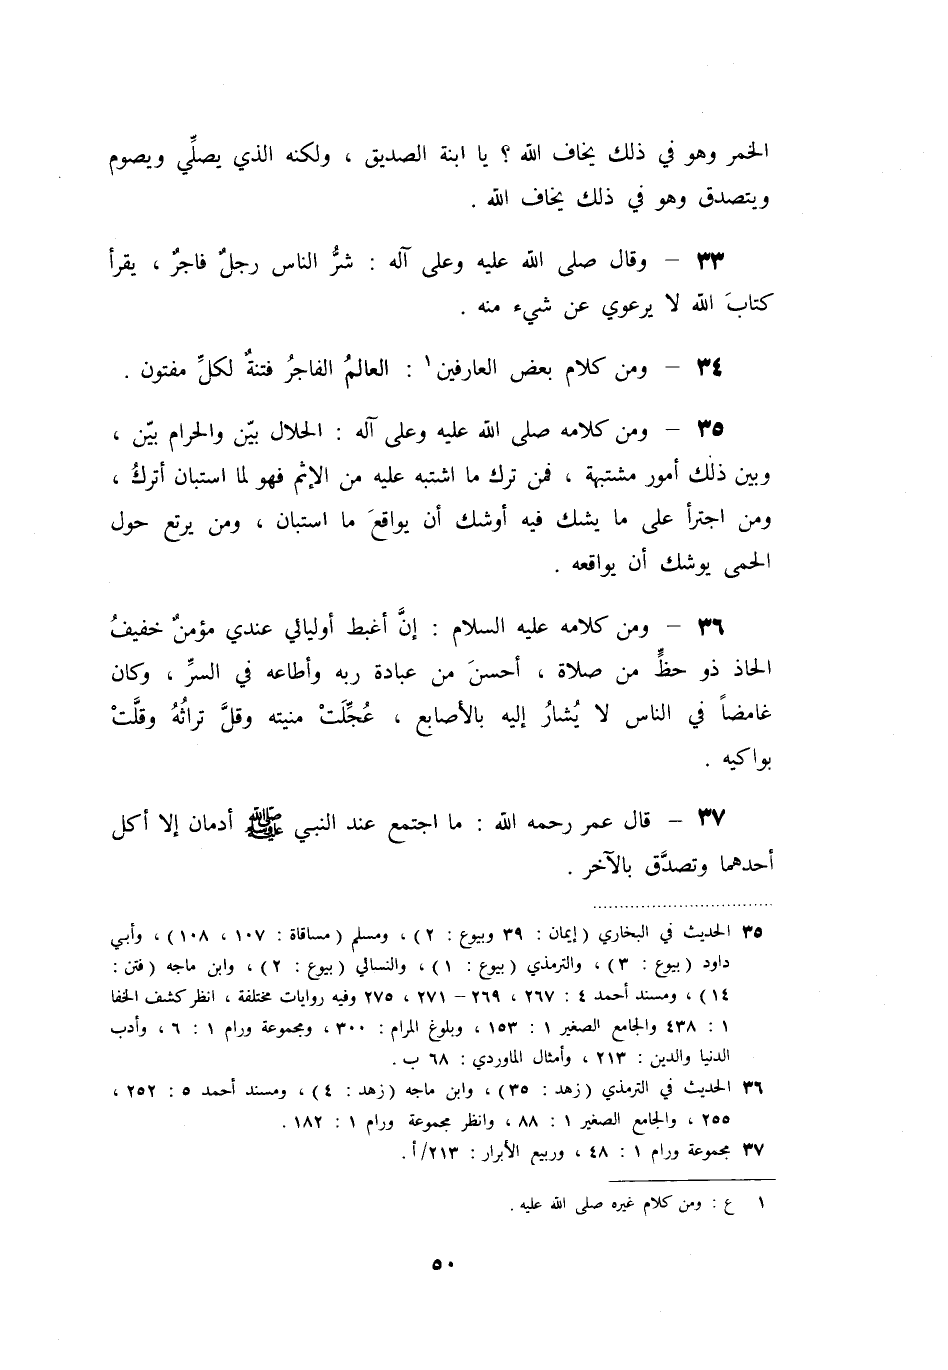 الخمر وهو في ذلك يخاف الله ؟ يا ابنة الصديق ، ولكنه الذي يصلِّي ويصوم
ويتصدق وهو في ذلك يخاف الله .
٣٣ – وقال صلى الله عليه وعلى آله : شرُّ الناس رجلٌ فاجرٌ ، يقرأ
كتابَ الله لا يرعوي عن شيء منه .
٣٤ – ومن كلام بعض العارفين١ : العالمُ الفاجرُ فتنةٌ لكلِّ مفتون .
٣٥ – ومن كلامه صلى الله عليه وعلى آله : الحلال بيّن والحرام بيّن ،
وبين ذلك أمور مشتبهة ، فمن ترك ما اشتبه عليه من الإثم فهو لما استبان أتركُ ،
ومن اجترأ على ما يشك فيه أوشك أن يواقعَ ما استبان ، ومن يرتع حول
الحمى يوشك أن يواقعه .
٣٦ – ومن كلامه عليه السلام : إنَّ أغبط أوليائي عندي مؤمنٌ خفيفُ
الحاذ ذو حظٍّ من صلاة ، أحسنَ من عبادة ربه وأطاعه في السرِّ ، وكان
غامضاً في الناس لا يُشارُ إليه بالأصابع ، عُجِّلَتْ منيته وقلَّ تراثُهُ وقلَّتْ
بواكيه .
٣٧ – قال عمر رحمه الله : ما اجتمع عند النبي ﷺ أدمان إلا أكل
أحدهما وتصدَّق بالآخر .
٣٥ الحديث في البخاري (إيمان : ٣٩ وبيوع : ٢) ، ومسلم (مساقاة : ١٠٧ ، ١٠٨) ، وأبي
داود (بيوع : ٣) ، والترمذي (بيوع : ١) ، والنسائي (بيوع : ٢) ، وابن ماجه (فتن :
١٤) ، ومسند أحمد ٤ : ٢٦٧ ، ٢٦٩ – ٢٧١ ، ٢٧٥ وفيه روايات مختلفة ، انظر كشف الخفا
١ : ٤٣٨ والجامع الصغير ١ : ١٥٣ ، وبلوغ المرام : ٣٠٠ ، ومجموعة ورام ١ : ٦ ، وأدب
الدنيا والدين : ٢١٣ ، وأمثال الماوردي : ٦٨ ب .
٣٦ الحديث في الترمذي (زهد : ٣٥) ، وابن ماجه (زهد : ٤) ، ومسند أحمد ٥ : ٢٥٢ ،
٢٥٥ ، والجامع الصغير ١ : ٨٨ ، وانظر مجموعة ورام ١ : ١٨٢ .
٣٧ مجموعة ورام ١ : ٤٨ ، وربيع الأبرار : ٢١٣/أ .
١ ع : ومن كلام غيره صلى الله عليه .
٥٠